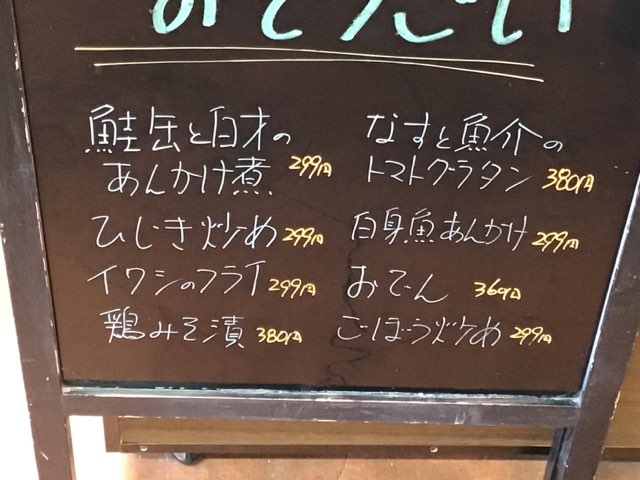 鮭缶と白才の
あんかけ煮 299円
ひじき炒め 299円
イワシのフライ 299円
鶏みそ漬 380円
なすと魚介の
トマトグラタン 380円
白身魚あんかけ 299円
おでん 360円
ごぼう炒め 299円